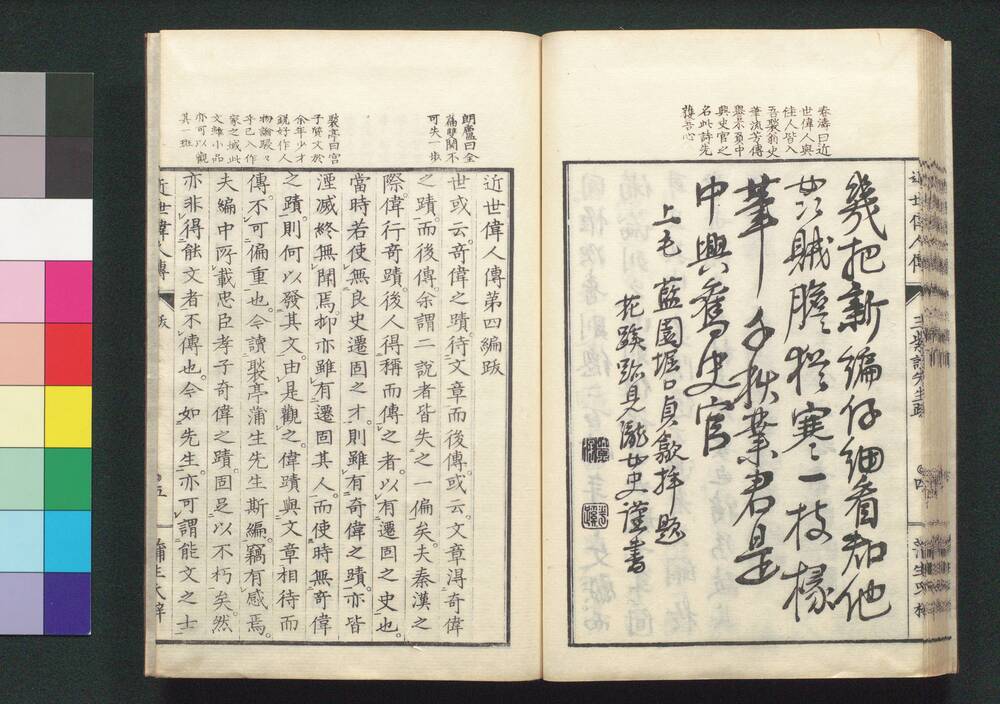 春濤曰近
世偉人與
佳人皆入
吾褧翁史
筆流芳傳
與史官之
名此詩先
獲吾心
幾把新編仔細看知他
賊膽猶寒寒一枝椽
筆千秋業君是
中興舊史官
上毛 藍園堀口貞歙拜題
花蹊跡見瀧女史謹書
近世偉人傳第四編跋
世或云奇偉之蹟待文章而後傳或云文章得奇偉
之蹟而後傳余謂二說者皆失之一偏矣夫秦漢之
際偉行奇蹟後人得稱而傳之者以有遷固之史也
當時若使無良史遷固之才則雖有奇偉之蹟亦皆
湮滅終無聞焉抑亦雖有遷固其人而使時無奇偉
之蹟則何以發其文由是觀之偉蹟與文章相待而
傳不可偏重也今讀褧亭蒲生先生斯編竊有感焉
夫編中所載忠臣孝子奇偉之蹟固足以不朽矣然
亦非得能文者不傳也今如先生亦可謂能文之士
朗廬曰全
篇雙關不
可失一步
褧亭曰宮
子齊文於
余年少才
銳好作人
物論駸々
乎已入作
家之域此
文雖小品
亦可以觀
其一班
近世偉人傳
跋